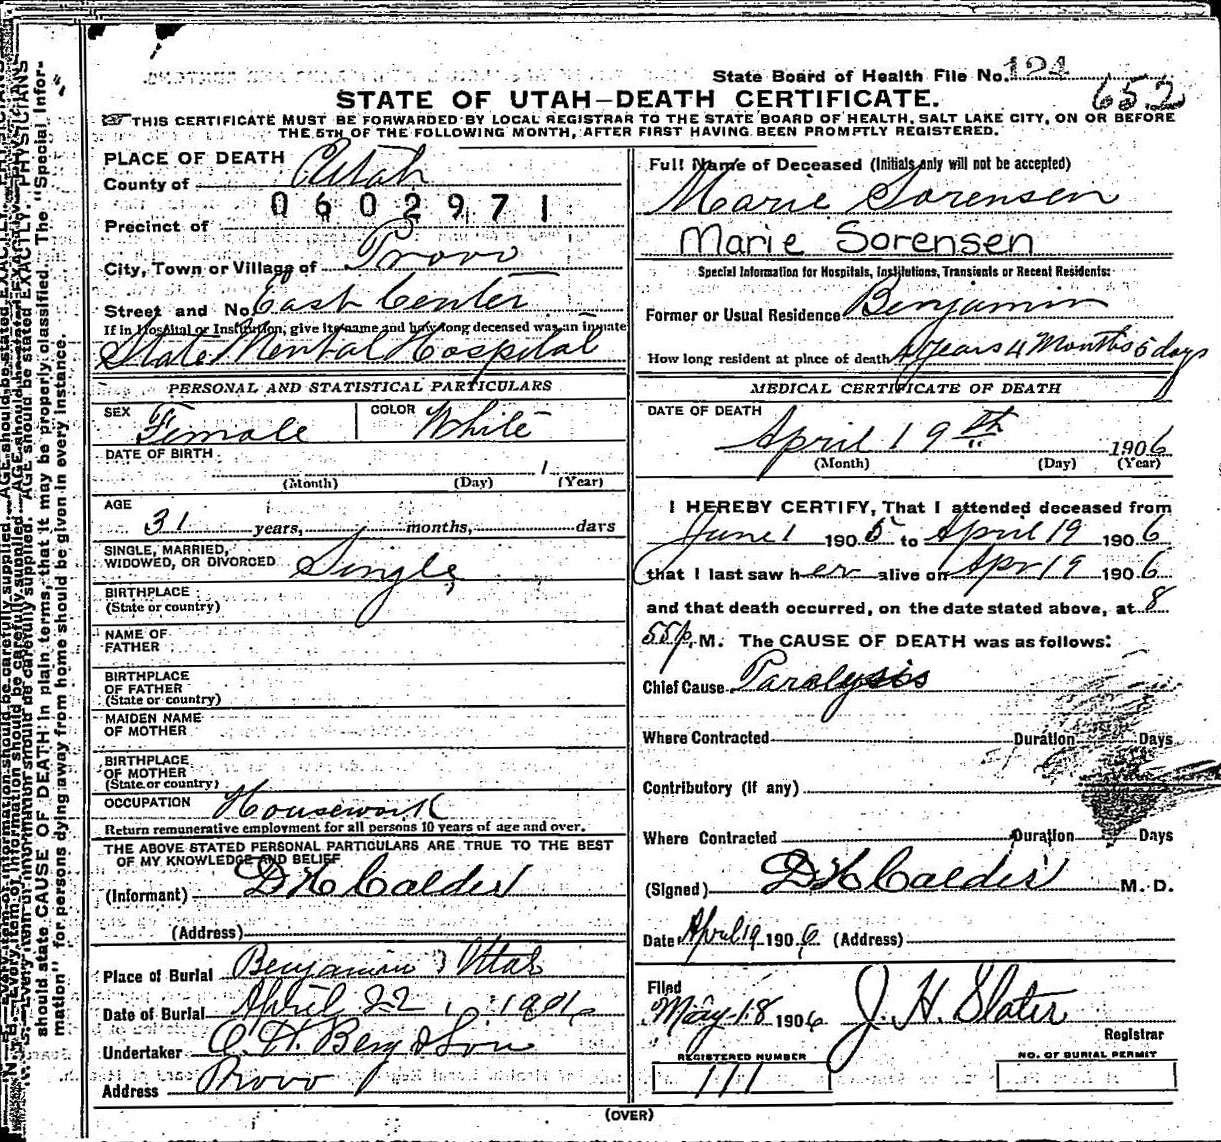 State Board of Health File No. 124
652
STATE OF UTAH—DEATH CERTIFICATE.
THIS CERTIFICATE MUST BE FORWARDED BY LOCAL REGISTRAR TO THE STATE BOARD OF HEALTH, SALT LAKE CITY, ON OR BEFORE
THE 5TH OF THE FOLLOWING MONTH, AFTER FIRST HAVING BEEN PROMPTLY REGISTERED.
PLACE OF DEATH
County of Utah
0602971
Precinct of
City, Town or Village of Provo
Street and No. East Center
If in Hospital or Institution, give its name and how long deceased was an inmate
State Mental Hospital
Full Name of Deceased (Initials only will not be accepted)
Marie Sorensen
Marie Sorensen
Special Information for Hospitals, Institutions, Transients or Recent Residents:
Former or Usual Residence Benjamin
How long resident at place of death years 4 Months 5 days
PERSONAL AND STATISTICAL PARTICULARS
SEX Female COLOR White
DATE OF BIRTH 1
(Month) (Day) (Year)
AGE
31 years, months, days
SINGLE, MARRIED,
WIDOWED, OR DIVORCED Single
BIRTHPLACE
(State or country)
NAME OF
FATHER
BIRTHPLACE
OF FATHER
(State or country)
MAIDEN NAME
OF MOTHER
BIRTHPLACE
OF MOTHER
(State or country)
OCCUPATION Housework
Return remunerative employment for all persons 10 years of age and over.
THE ABOVE STATED PERSONAL PARTICULARS ARE TRUE TO THE BEST
OF MY KNOWLEDGE AND BELIEF
(Informant) D H Calder
(Address)
Place of Burial Benjamin Utah
Date of Burial April 22 1906
Undertaker C. H. Berg & Son
Address Provo
MEDICAL CERTIFICATE OF DEATH
DATE OF DEATH
April 19th 1906
(Month) (Day) (Year)
I HEREBY CERTIFY, That I attended deceased from
June 1 1905 to April 19 1906
that I last saw her alive on Apr 19 1906
and that death occurred, on the date stated above, at 8
55 p. M. The CAUSE OF DEATH was as follows:
Chief Cause Paralysis
Where Contracted Duration Days
Contributory (if any)
Where Contracted Duration Days
(Signed) D H Calder M. D.
Date April 19 1906 (Address)
Filed
May 18 1906 J. H. Slater
Registrar
REGISTERED NUMBER
111
NO. OF BURIAL PERMIT
(OVER)
should state CAUSE OF DEATH in plain terms, that it may be properly classified. The "Special Infor-
mation" for persons dying away from home should be given in every instance.